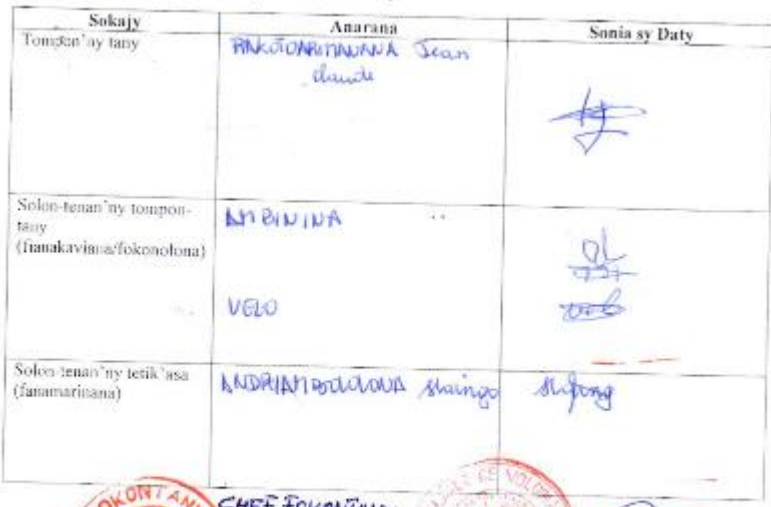 Sokajy Anarana Sonia sy Daty
Tompon'ny tany RAKOTOARIMANANA Jean
Claude
Solon-tenan'ny tompon-
tany
(fianakaviana/fokonolona)
AMBININA
VELO
Solon-tenan'ny tetik'asa
(fanamarinana)
ANDRIAMBOLOLONA
CHEF FOKONTANY